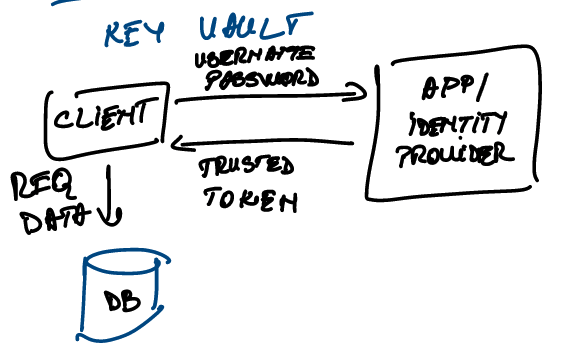 KEY VAULT
USERNAME
PASSWORD
CLIENT
APP/
IDENTITY
PROVIDER
TRUSTED
TOKEN
REQ
DATA
DB